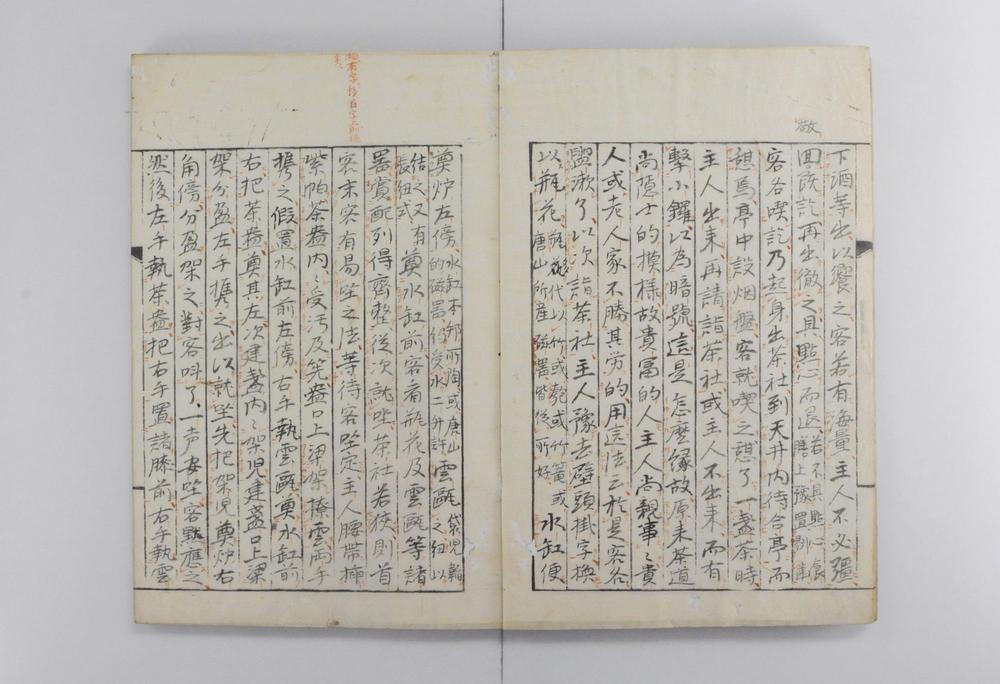 敬
下酒等出以饗之客若有海量主人不必彊
回飯訖再出徹之具點心而退若不具點心食
膳上豫置
客各喫訖乃起身出茶社到天井内待合亭而
憩焉亭中設烟盤客就喫之憩了一盞茶時
主人出来再請詣茶社或主人不出来而有
擊小鑼以為暗號這是怎麼緣故原来茶道
尚隠士的摸様故貴冨的人主人尚親事〻貴
人或老人家不勝其労的用這法云於是客各
盥漱了以次詣茶社主人豫去壁頭掛字換
以瓶花瓶花代以竹或匏或竹簧或水缸便
唐山所産磁器皆従所好
奠炉左傍水缸本邦所陶或唐山
的磁器仍受水二升許雲甌袋児䋲之紐以
結之又有
長紐式奠水缸前客看瓶花及雲甌等諸
器賞配列得齊整従次就坐茶社若狭則首
客末客有易坐之法等待客坐定主人腰帯挿
紫帕茶盌内〻受汚及筅盌口上梁架掩雲両手
携之假置水缸前左傍右手執雲甌奠水缸前
右把茶盌奠其左次建盞内〻架児建盞口上梁
架分盈左手携之出以就坐先把架児奠炉右
角傍分盈架之對客呌了一声安坐客點應之
然後左手執茶盌把右手置諸膝前右手執雲